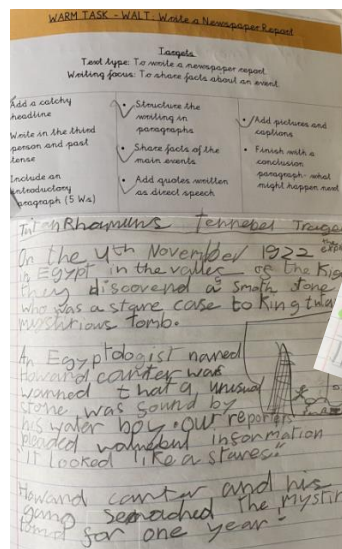 WARM TASK - WALT: Write a Newspaper Report
Targets
Text type: To write a newspaper report.
Writing focus: To share facts about an event.
Add a catchy
headline
Write in the third
person and past
tense
Include an
introductory
paragraph (5 Ws)
Structure the
writing in
paragraphs
Share facts of the
main events
Add quotes written
as direct speech
Add pictures and
captions
Finish with a
conclusion
paragraph- what
might happen next
On the 4th November 1922
in Egypt in the valley of the
they discoverd a stone
who was a stare case to King
tomb.
An Egyptologist named
Howard carter was
that a unusual
stone was found by
his water boy. our reporters
information
"it looked like a
Howard carter and his
gang the
for one year